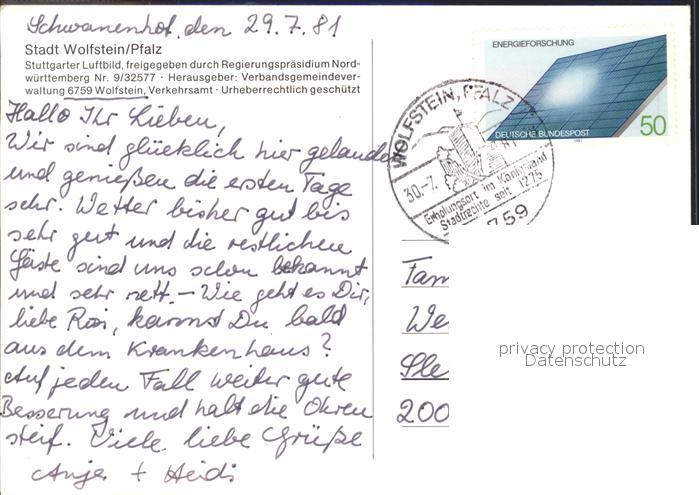 Schwanenhof, den 29.7.81
Stadt Wolfstein/Pfalz
Stuttgarter Luftbild, freigegeben durch Regierungspräsidium Nord-
württemberg Nr. 9/32577 · Herausgeber: Verbandsgemeindever-
waltung 6759 Wolfstein, Verkehrsamt · Urheberrechtlich geschützt
Hallo Ihr Lieben,
Wir sind glücklich hier gelandet
und genießen die ersten Tage
sehr. Wetter bisher gut bis
sehr gut und die restlichen
Gäste sind uns schon bekannt
und sehr nett. – Wie geht es Dir,
liebe Rosi, kannst Du bald
aus dem Krankenhaus?
Auf jeden Fall weiter gute
Besserung und halt die Ohren
steif. Viele liebe Grüße
Anja + Heidi
ENERGIEFORSCHUNG
DEUTSCHE BUNDESPOST
50
WOLFSTEIN, PFALZ
30.-7.
Erholungsort im Königsland
Stadtrechte seit 1275
759
Fam
We
Ple
200
privacy protection
Datenschutz